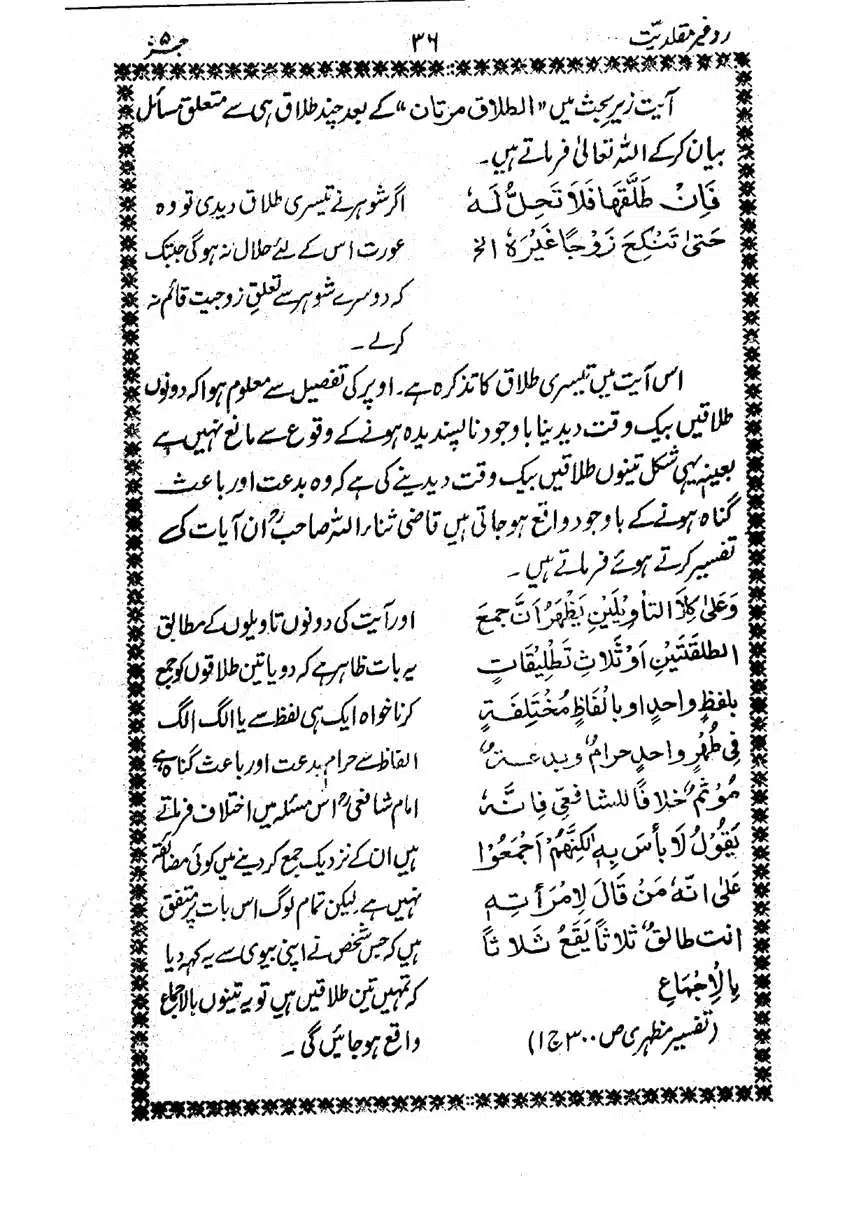 رد غیر مقلدیت ۳۶ جز ۵
آیت زیر بحث میں "الطلاق مرتان" کے بعد چند طلاق ہی سے متعلق مسائل
بیان کر کے اللہ تعالیٰ فرماتے ہیں۔
فَاِنْ طَلَّقَهَا فَلَا تَحِلُّ لَهٗ
حَتیٰ تَنْکِحَ زَوْجًا غَیْرَہٗ الخ
اگر شوہر نے تیسری طلاق دیدی تو وہ
عورت اس کے لئے حلال نہ ہوگی جبتک
کہ دوسرے شوہر سے تعلقِ زوجیت قائم نہ
کرلے۔
اس آیت میں تیسری طلاق کا تذکرہ ہے۔ اوپر کی تفصیل سے معلوم ہوا کہ دونوں
طلاقیں بیک وقت دیدینا باوجود ناپسندیدہ ہونے کے وقوع سے مانع نہیں ہے
بعینہٖ یہی شکل تینوں طلاقیں بیک وقت دیدینے کی ہے کہ وہ بدعت اور باعث
گناہ ہونے کے باوجود واقع ہو جاتی ہیں قاضی ثناء اللہ صاحبؒ ان آیات کی
تفسیر کرتے ہوئے فرماتے ہیں۔
وَعَلیٰ کِلَا التأویْلَیْنِ یَظْهَرُ اَنَّ جمعَ
الطلقَتَیْنِ اَوْ ثَلَاثِ تَطْلِیْقَاتٍ
بلفظٍ واحدٍ او بالْفَاظٍ مُخْتَلِفَةٍ
فِی طُهْرٍ واحدٍ حرامٌ وبدعةٌ
مُوْثِمٌ خلافًا للشافعیِ فانّهٗ
یَقُوْلُ لَا بأسَ بِهٖ لٰکِنَّهُمْ اَجْمَعُوْا
عَلیٰ انّهٗ مَنْ قَالَ لِاِمْرَأَتِهٖ
انت طالقٌ ثلاثاً یَقَعُ ثَلَاثًا
بِالْاِجْمَاعِ
(تفسیر مظہری ص ۳۰۰ ج ۱)
اور آیت کی دونوں تاویلوں کے مطابق
یہ بات ظاہر ہے کہ دو یا تین طلاقوں کو جمع
کرنا خواہ ایک ہی لفظ سے یا الگ الگ
الفاظ سے حرام، بدعت اور باعث گناہ ہے
امام شافعیؒ اس مسئلہ میں اختلاف فرماتے
ہیں ان کے نزدیک جمع کر دینے میں کوئی مضائقہ
نہیں ہے۔ لیکن تمام لوگ اس بات پر متفق
ہیں کہ جس شخص نے اپنی بیوی سے یہ کہہ دیا
کہ تمہیں تین طلاقیں ہیں تو یہ تینوں بالاجماع
واقع ہو جائیں گی۔